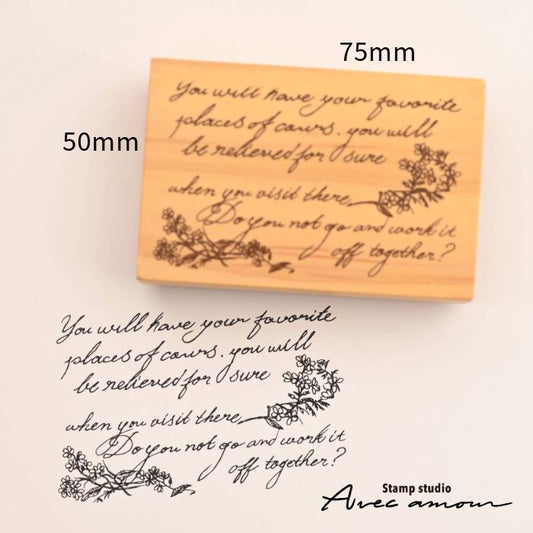 75mm
50mm
You will have your favorite
places of cours. you will
be relieved for sure
when you visit there
Do you not go and work it
off together?
You will have your favorite
places of cours. you will
be relieved for sure
when you visit there
Do you not go and work it
off together?
Stamp studio
Avec amour